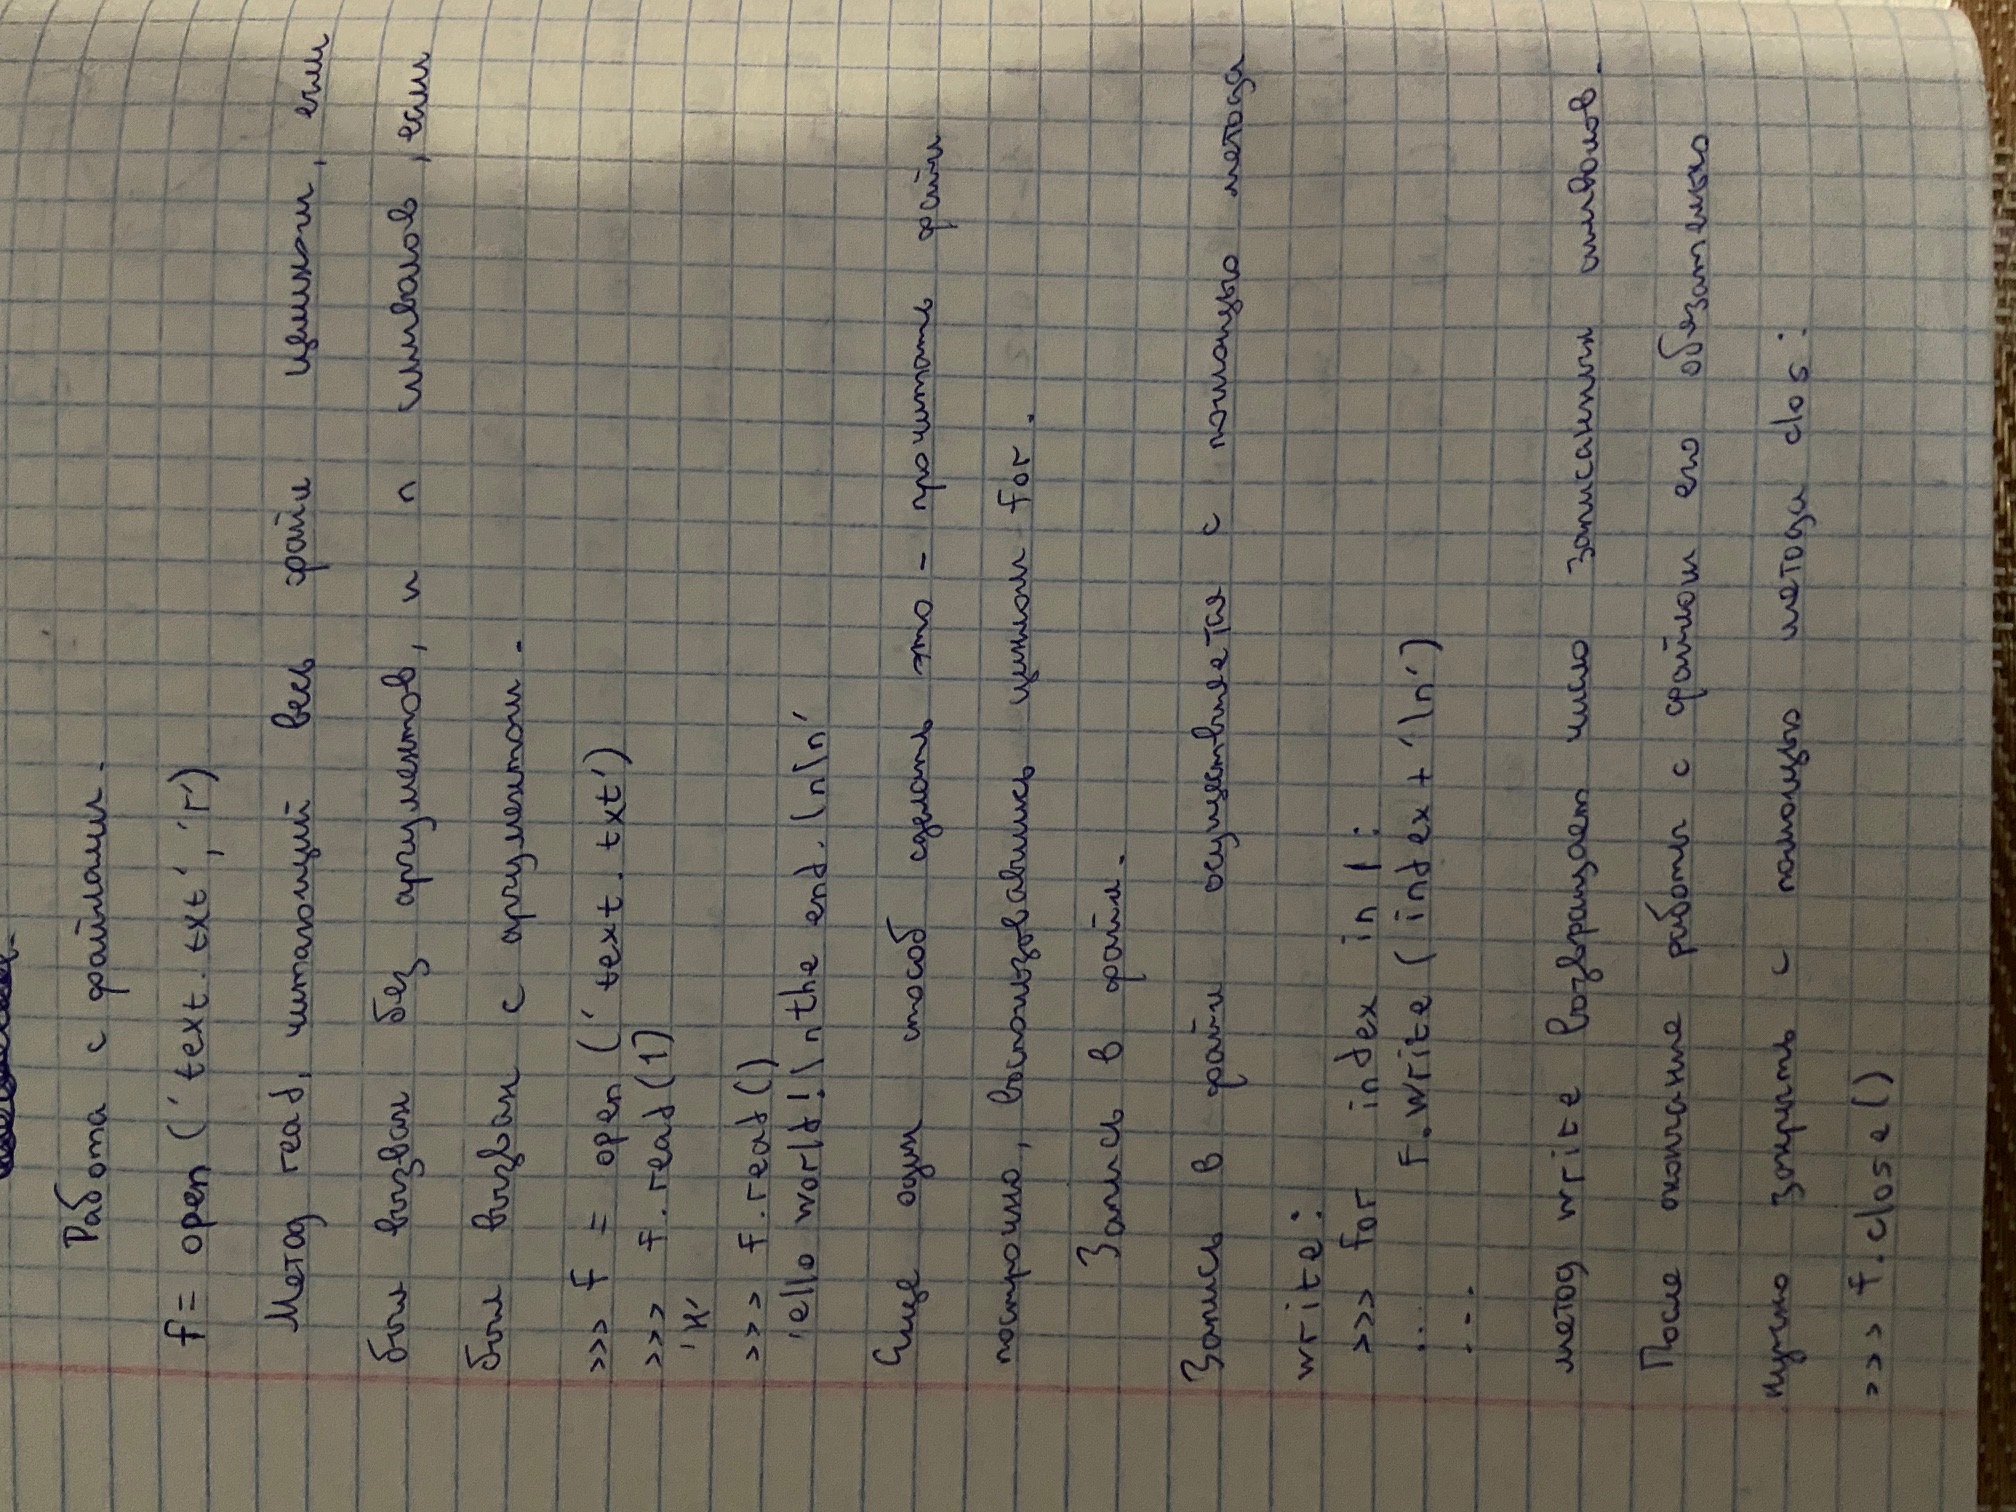 Работа с файлами.
f = open ('text.txt', 'r')
Метод read, читающий весь файл целиком, если
был вызван без аргументов, и n символов, если
был вызван с аргументом.
>>> f = open ('text.txt')
>>> f.read(1)
'H'
>>> f.read()
'ello world!\nthe end.\n\n'
Еще один способ сделать это - прочитать файл
построчно, воспользовавшись циклом for.
Запись в файл.
Запись в файл осуществляется с помощью метода
write:
>>> for index in l:
... f.write (index + '\n')
...
метод write возвращает число записанных символов.
После окончание работы с файлом его обязательно
нужно закрыть с помощью метода clos:
>>> f.close()